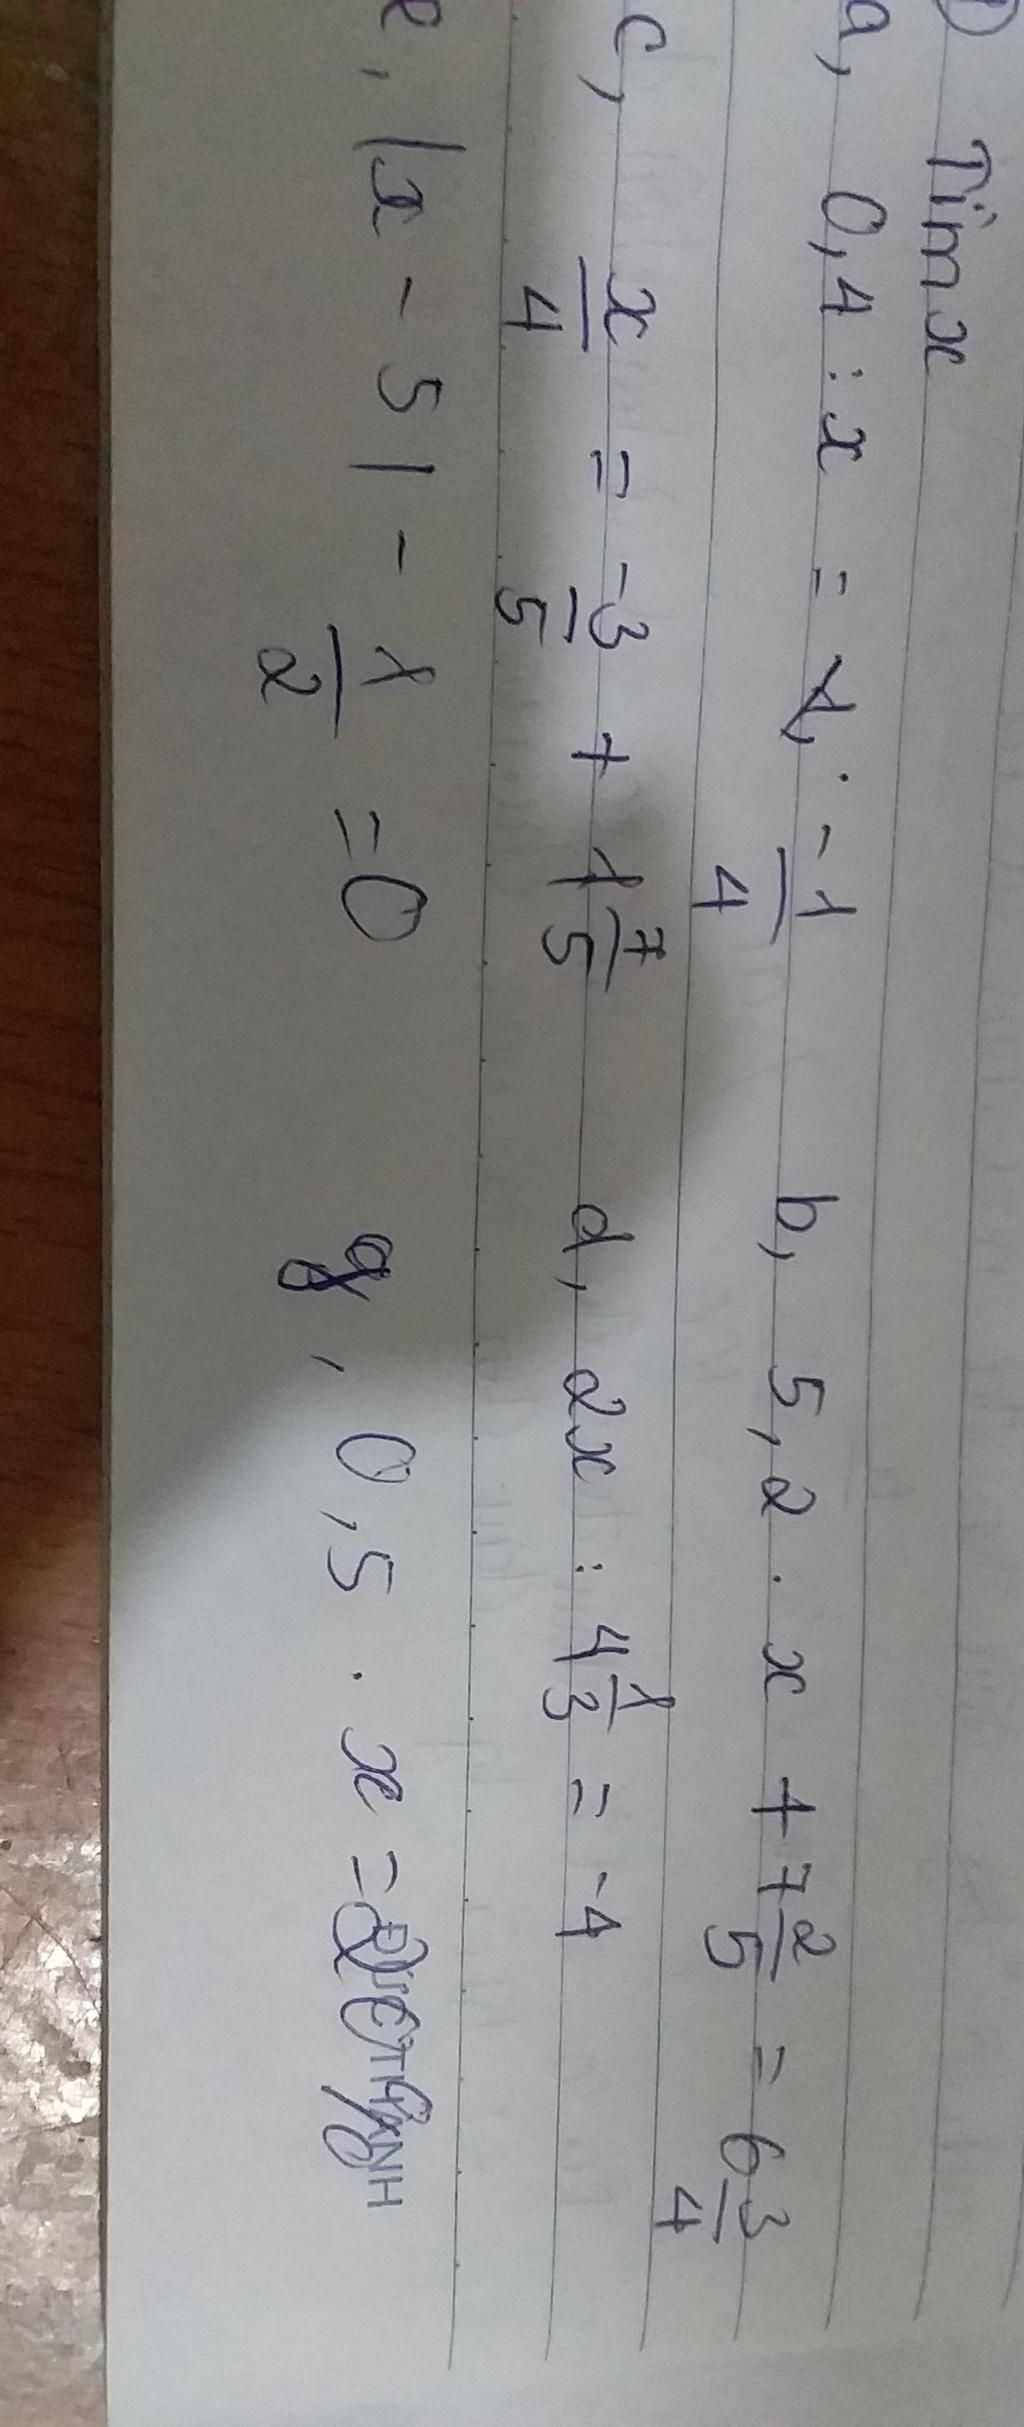 1 Tìm x
a, 0,4 : x = 1. -1/4 b, 5,2 . x + 7 2/5 = 6 3/4
c, x/4 = -3/5 + 1 7/5 d, 2x : 4 1/3 = -4
e, |x - 5| - 1/2 = 0 g, 0,5 . x =